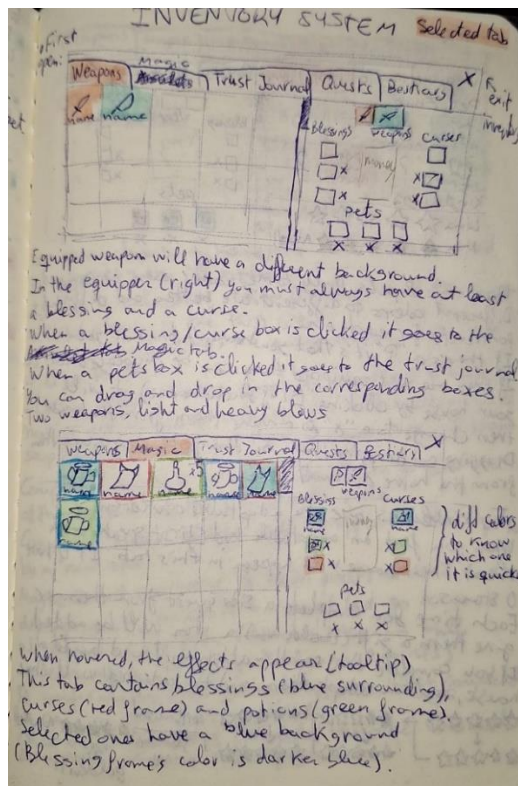 INVENTORY SYSTEM
Selected tab
First
open:
Weapons
Magic
Trust Journal
Quests
Bestiary
X
exit
inventory
name
name
Blessings
weapons
Curses
money
x
x
x
x
pets
x x x
Equipped weapon will have a different background.
In the equipper (right) you must always have at least
a blessing and a curse.
When a blessing/curse box is clicked it goes to the
Magic tab.
When a pets box is clicked it goes to the trust journal
You can drag and drop in the corresponding boxes.
Two weapons, light and heavy blows
Weapons
Magic
Trust Journal
Quests
Bestiary
X
x5
name
name
name
name
name
name
weapons
Blessings
Curses
name
name
x
x
x
x
diff colors
to know
which one
it is quick
pets
x x x
When hovered, the effects appear (tooltip)
This tab contains blessings (blue surrounding),
curses (red frame) and potions (green frame).
Selected ones have a blue background
(Blessing frame's color is darker blue).